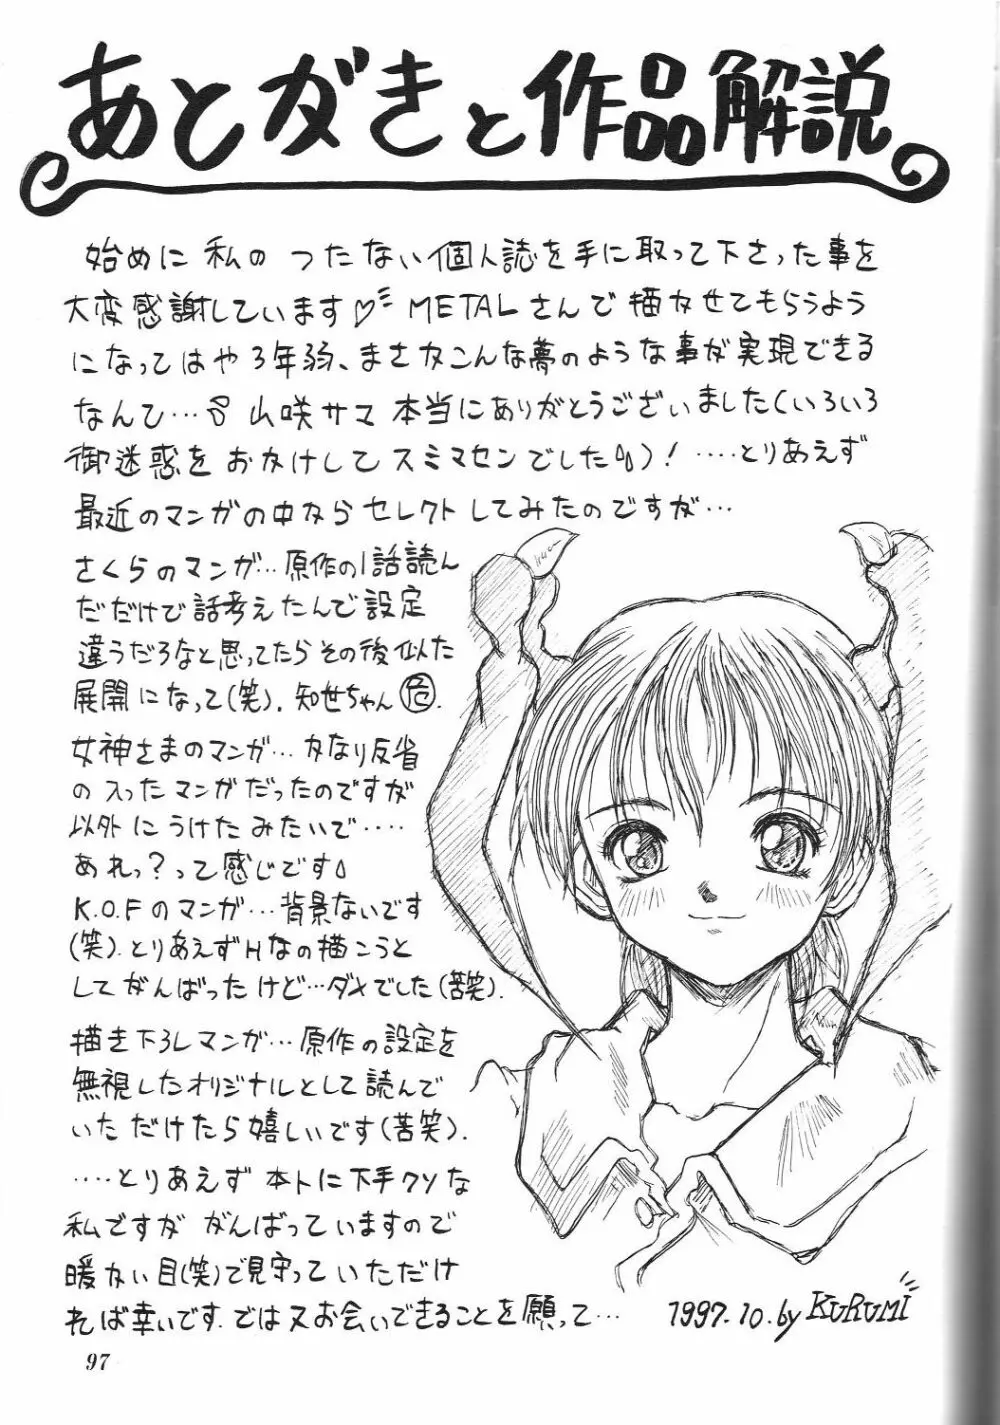 あとがきと作品解説
始めに私のつたない個人誌を手に取って下さった事を
大変感謝しています♡ METALさんで描かせてもらうよう
になってはや3年弱、まさかこんな夢のような事が実現できる
なんて… 山咲サマ本当にありがとうございました(いろいろ
御迷惑をおかけしてスミマセンでした)! ‥‥とりあえず
最近のマンガの中からセレクトしてみたのですが…
さくらのマンガ…原作の1話読ん
だだけで話考えたんで設定
違うだろなと思ってたらその後似た
展開になって(笑). 知世ちゃん㊋.
女神さまのマンガ…かなり反省
の入ったマンガだったのですが
以外にうけたみたいで‥‥
あれっ?って感じです
K.O.Fのマンガ…背景ないです
(笑). とりあえずHなの描こうと
してがんばったけど…ダメでした(苦笑).
描き下ろしマンガ…原作の設定を
無視したオリジナルとして読んで
いただけたら嬉しいです(苦笑).
‥‥とりあえず本トに下手クソな
私ですががんばっていますので
暖かい目(笑)で見守っていただけ
れば幸いです. では又お会いできることを願って…
1997.10.by KURUMI
97